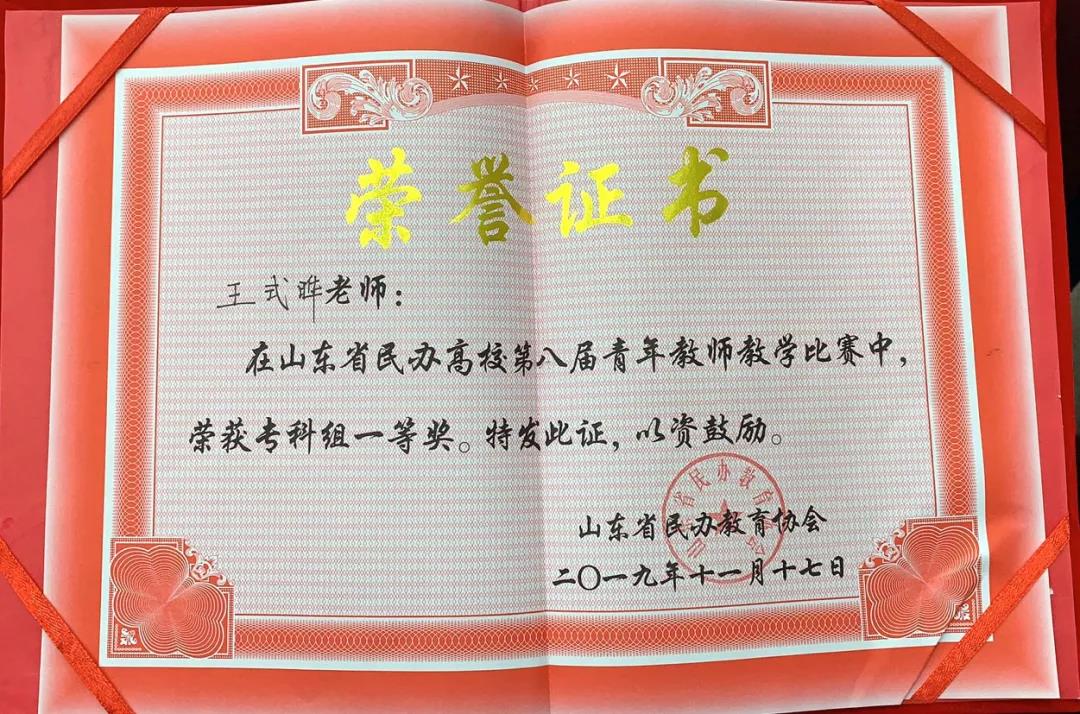 荣誉证书
王式晔老师：
在山东省民办高校第八届青年教师教学比赛中，
荣获专科组一等奖。特发此证，以资鼓励。
省民办教育
山东省民办教育协会
二〇一九年十一月十七日